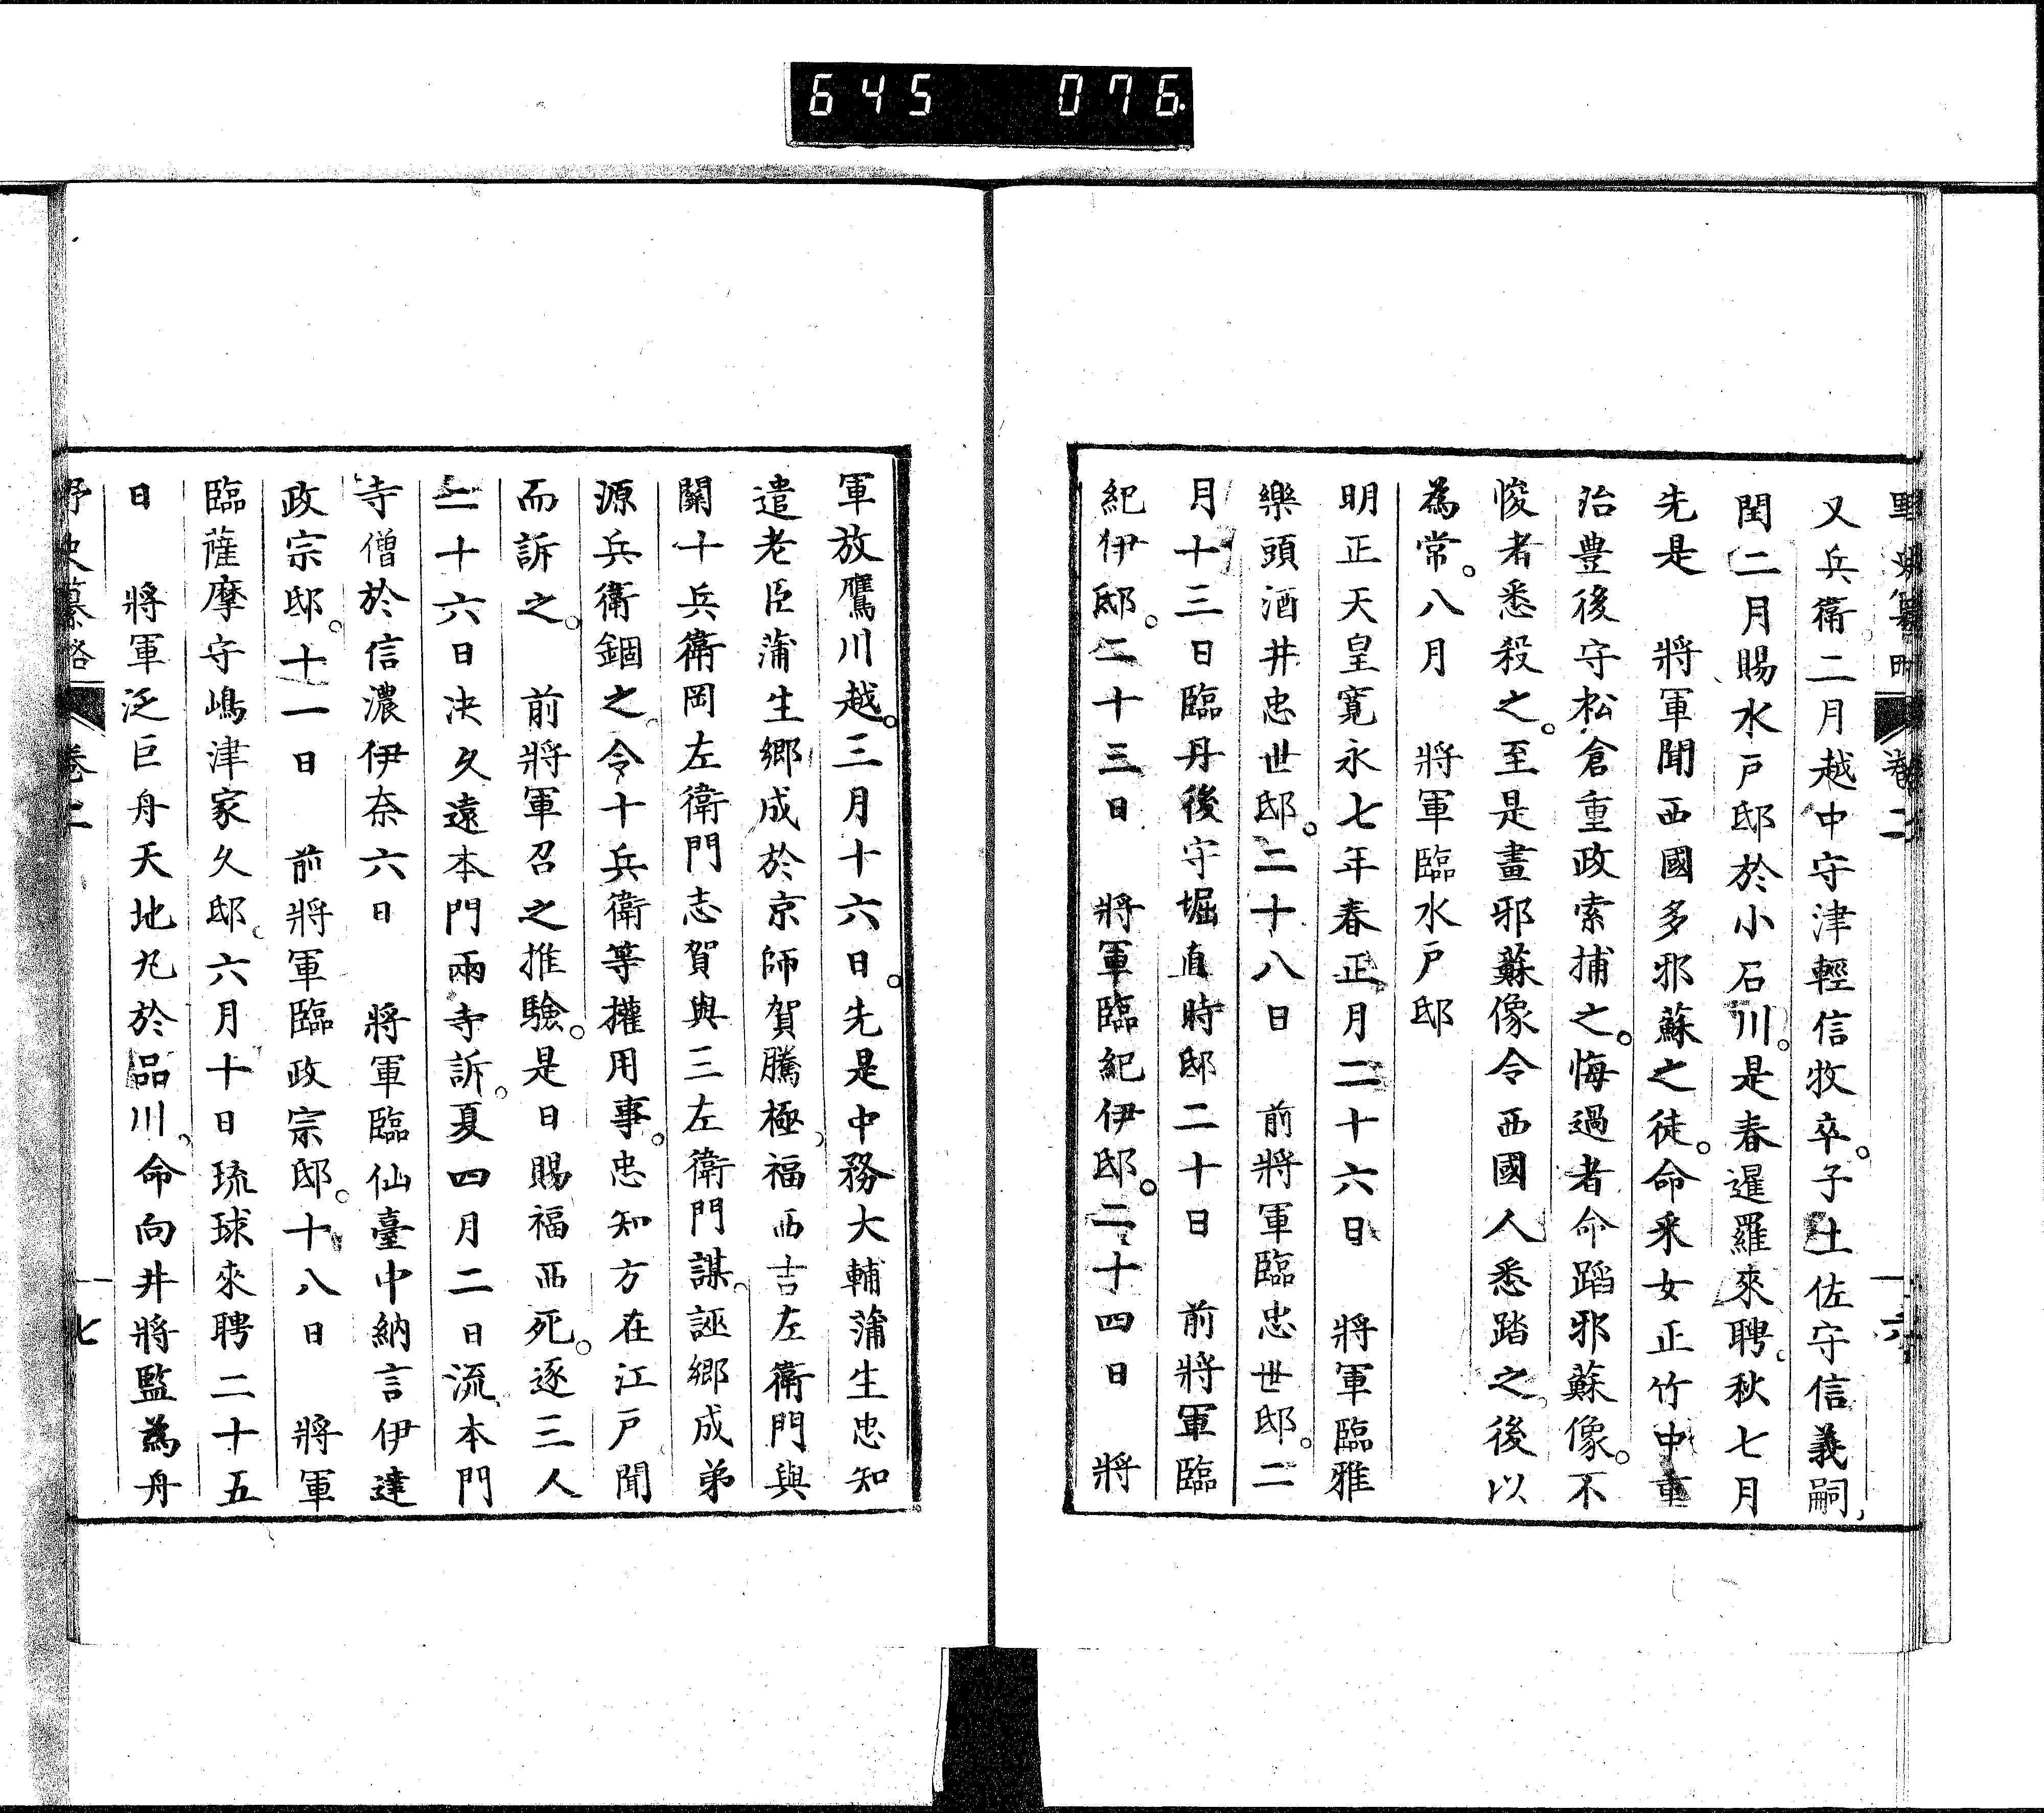 645 076
又兵衛二月越中守津輕信牧卒。子土佐守信義嗣、
閏二月賜水戸邸於小石川。是春暹羅來聘。秋七月
先是　將軍聞西國多邪蘇之徒。命釆女正竹中重
治豊後守松倉重政索捕之。悔過者命蹈邪蘇像。不
悛者悉殺之。至是畫邪蘇像令西國人悉踏之。後以
為常。八月　將軍臨水戸邸
明正天皇寛永七年春正月二十六日　將軍臨雅
樂頭酒井忠世邸。二十八日　前將軍臨忠世邸。二
月十三日臨丹後守堀直時邸二十日　前將軍臨
紀伊邸。二十三日　將軍臨紀伊邸。二十四日　將
軍放鷹川越。三月十六日。先是中務大輔蒲生忠知
遣老臣蒲生郷成於京師賀騰極。福西吉左衛門與
關十兵衛岡左衛門志賀與三左衛門謀。誣郷成弟
源兵衛錮之。令十兵衛等擅用事。忠知方在江戸聞
而訴之。　前將軍召之推驗。是日賜福西死。逐三人
二十六日决久遠本門兩寺訴。夏四月二日流本門
寺僧於信濃伊奈六日　將軍臨仙臺中納言伊達
政宗邸。十一日　前將軍臨政宗邸。十八日　將軍
臨薩摩守嶋津家久邸。六月十日琉球來聘二十五
日　將軍泛巨舟天地丸於品川。命向井將監為舟
卷之
七